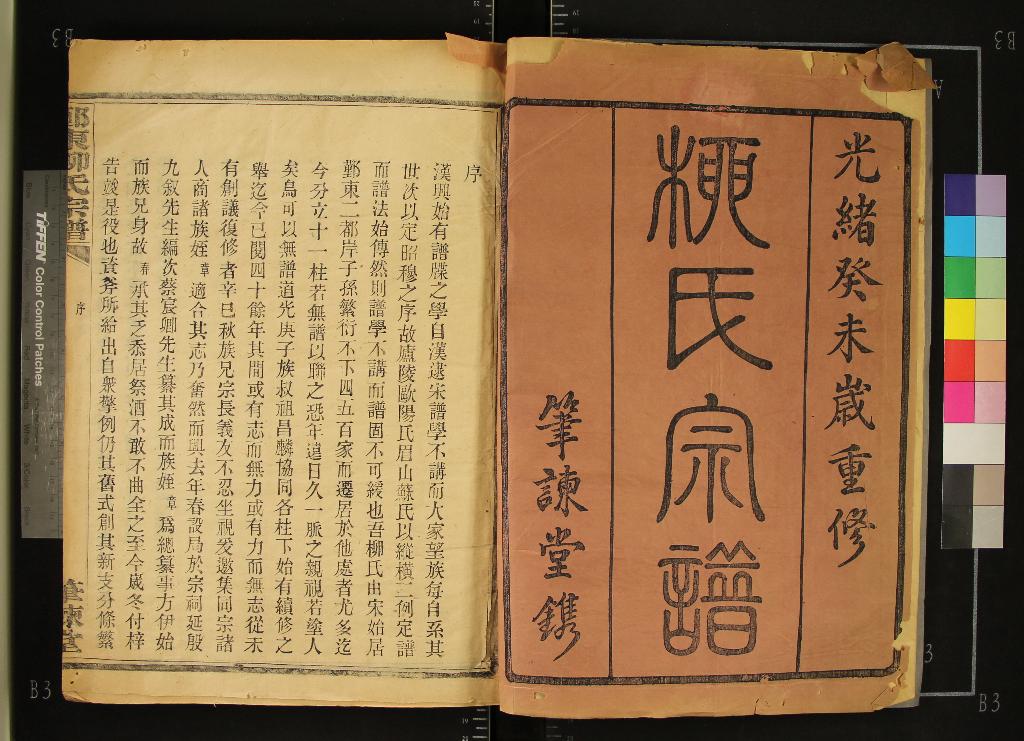 光緒癸未歲重修
柳氏宗譜
筆諫堂鐫
序
漢興始有譜牒之學自漢逮宋譜學不講而大家望族每自系其
世次以定昭穆之序故廬陵歐陽氏眉山蘇氏以縱橫二例定譜
而譜法始傳然則譜學不講而譜固不可緩也吾柳氏出宋始居
鄞東二都岸子孫繁衍不下四五百家而遷居於他處者尤多迄
今分立十一柱若無譜以聯之恐年遠日久一脈之親視若塗人
矣烏可以無譜道光庚子族叔祖昌麟協同各柱下始有續修之
舉迄今已閱四十餘年其間或有志而無力或有力而無志從未
有創議復修者辛巳秋族兄宗長義友不忍坐視爰邀集同宗諸
人商諸族姪章適合其志乃奮然而興去年春設局於宗祠延殷
九敘先生編次蔡宸卿先生纂其成而族姪章爲總纂事方伊始
而族兄身故承其乏忝居祭酒不敢不曲全之至今歲冬付梓
告竣是役也資斧所給出自衆擎例仍其舊式創其新支分條繁
鄞東柳氏宗譜
序
筆諫堂
TIFFEN Color Control Patches
B3
B3
B3
B3